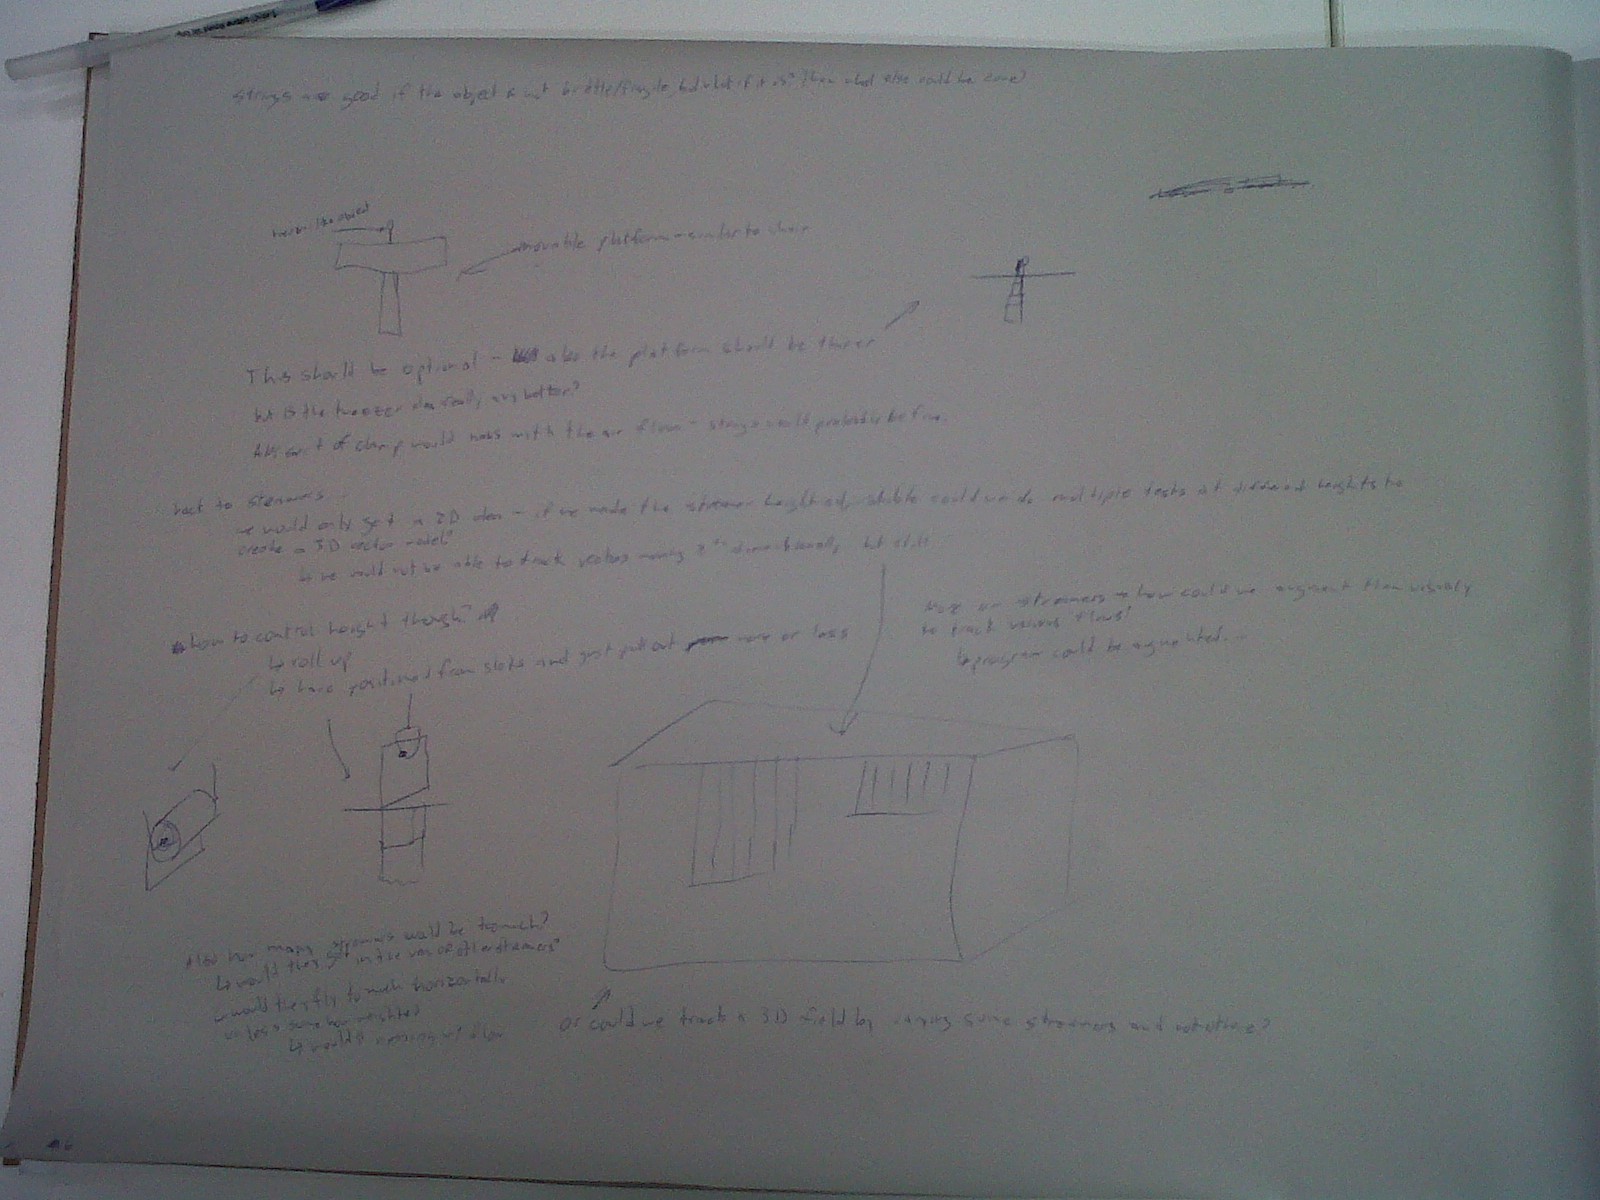 strings are good if the object is not brittle/fragile, but what if it is? Then what else could be done?
object
movable platform - similar to chair
This should be optional - also the platform should be thinner
but is the tweezer idea really any better?
Any sort of clamp would mess with the air flow - strings would probably be fine.
back to streamers...
we would only get a 2D idea - if we made the streamer height adjustable could we do multiple tests at different heights to
create a 3D vector model?
↳ we would not be able to track vectors moving 3rd dimensionally but still
Note on streamers → how could we augment them visually
to track various flows?
↳ program could be augmented...
how to control height though?
↳ roll up
↳ have positioned from slots and just pull out more or less
Also how many streamers would be too much?
↳ would they get in the way of other streamers?
would they fly too much horizontally
unless somehow weighted?
↳ would messing w/ flow
or could we track a 3D field by varying some streamers and not others?
6